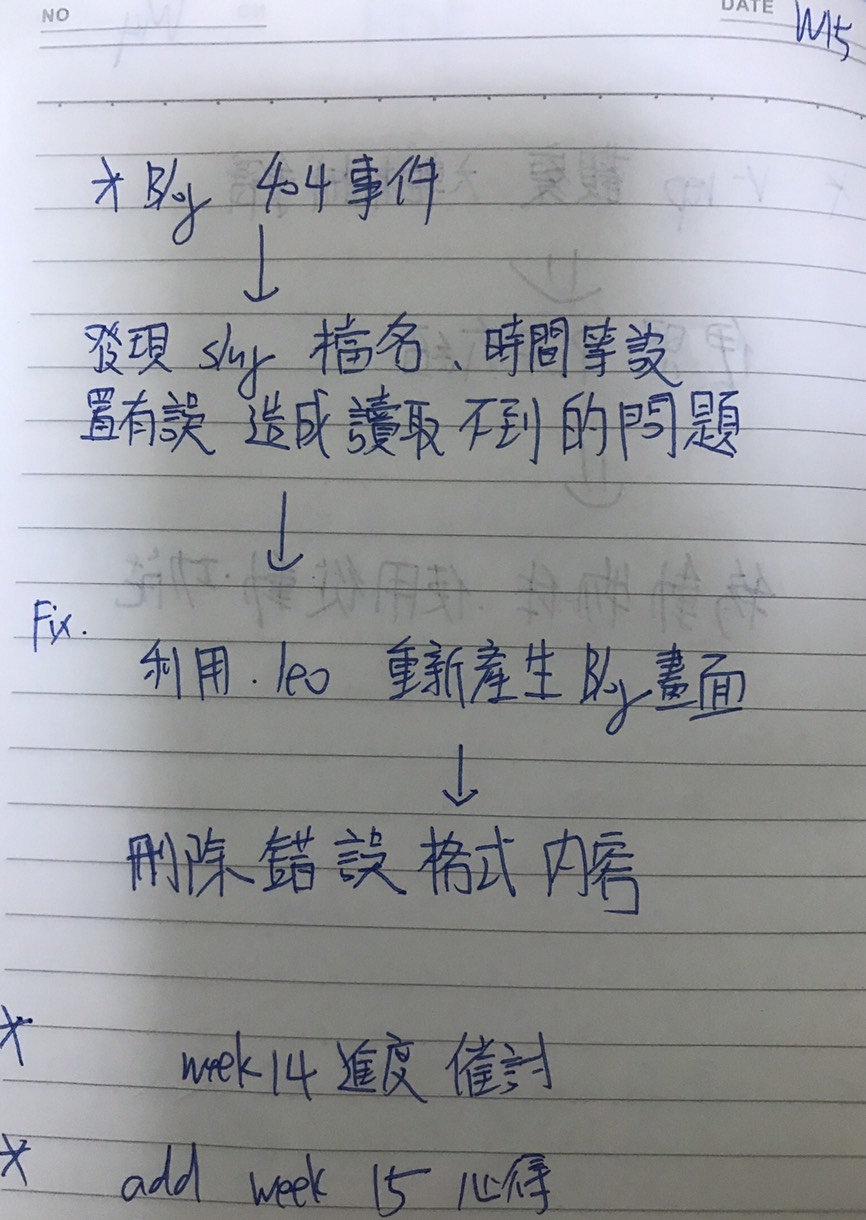 NO
DATE
W15
* Blog 404事件
↓
發現 slug 檔名、時間等設
置有誤 造成讀取不到的問題
↓
Fix.
利用.leo 重新產生Blog畫面
↓
刪除錯誤格式內容
* week14 進度 催討
* add week 15 心得